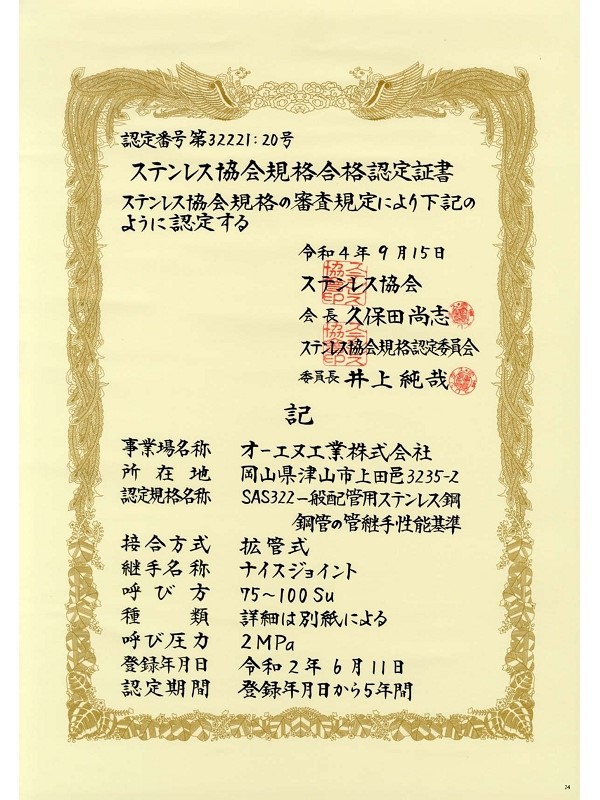 認定番号第32221:20号
ステンレス協会規格合格認定証書
ステンレス協会規格の審査規定により下記の
ように認定する
令和4年9月15日
ステンレス協会
会長 久保田尚志
ステンレス協会規格認定委員会
委員長 井上純哉
記
事業場名称 オーエヌ工業株式会社
所在地 岡山県津山市上田邑3235-2
認定規格名称 SAS322一般配管用ステンレス鋼
鋼管の管継手性能基準
接合方式 拡管式
継手名称 ナイスジョイント
呼び方 75~100Su
種類 詳細は別紙による
呼び圧力 2MPa
登録年月日 令和2年6月11日
認定期間 登録年月日から5年間
24